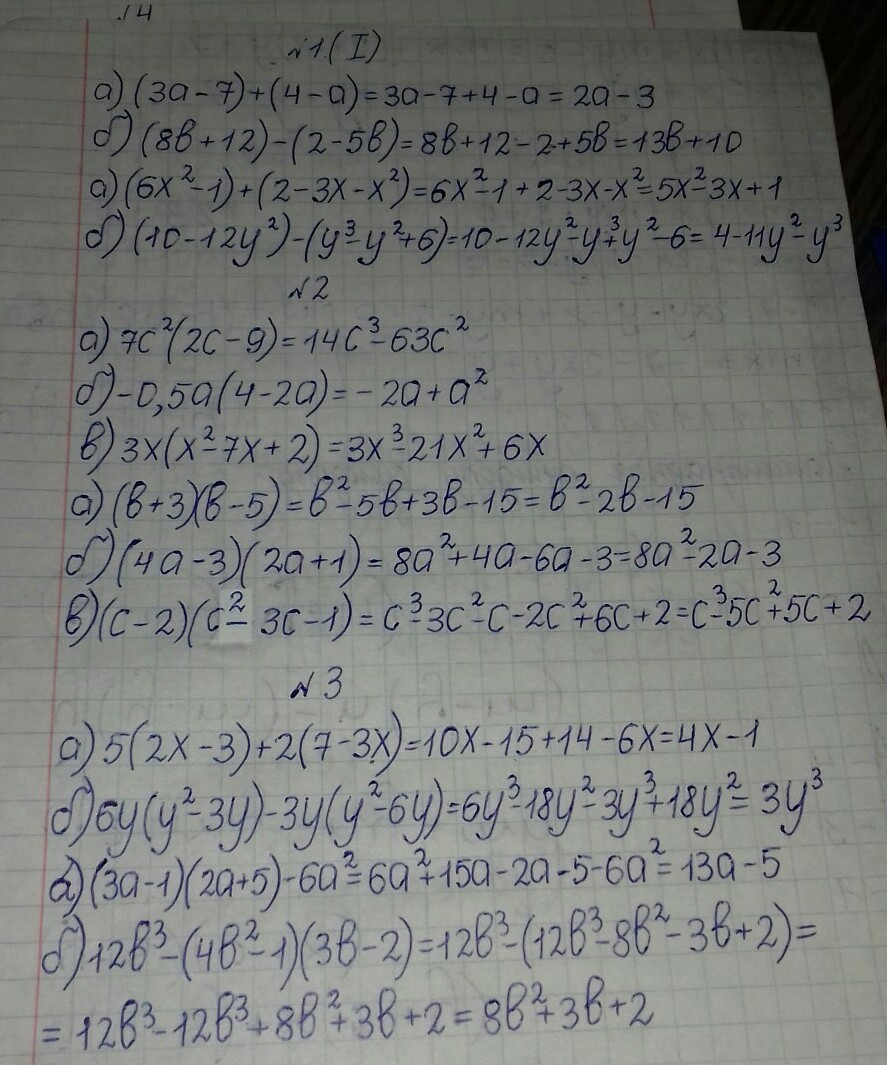 №4
№1(I)
а) (3a-7)+(4-a)=3a-7+4-a=2a-3
б) (8b+12)-(2-5b)=8b+12-2+5b=13b+10
а) (6x²-1)+(2-3x-x²)=6x²-1+2-3x-x²=5x²-3x+1
б) (10-12y²)-(y³-y²+6)=10-12y²-y³+y²-6=4-11y²-y³
№2
а) 7c²(2c-9)=14c³-63c²
б) -0,5a(4-2a)=-2a+a²
в) 3x(x²-7x+2)=3x³-21x²+6x
а) (b+3)(b-5)=b²-5b+3b-15=b²-2b-15
б) (4a-3)(2a+1)=8a²+4a-6a-3=8a²-2a-3
в) (c-2)(c²-3c-1)=c³-3c²-c-2c²+6c+2=c³-5c²+5c+2
№3
а) 5(2x-3)+2(7-3x)=10x-15+14-6x=4x-1
б) 6y(y²-3y)-3y(y²-6y)=6y³-18y²-3y³+18y²=3y³
а) (3a-1)(2a+5)-6a²=6a²+15a-2a-5-6a²=13a-5
б) 12b³-(4b²-1)(3b-2)=12b³-(12b³-8b²-3b+2)=
=12b³-12b³+8b²+3b+2=8b²+3b+2